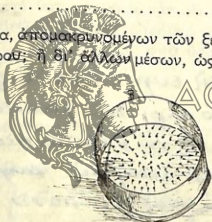 α, ἀπομακρυνομένων τῶν ξε
ρου; ἢ δι' ἄλλων μέσων, ὡς